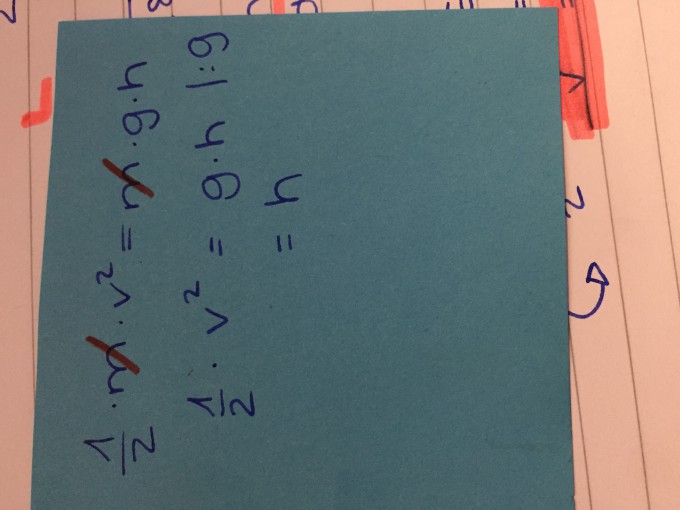 1/2 · m · v² = m · g · h
1/2 · v² = g · h |:g
= h
2